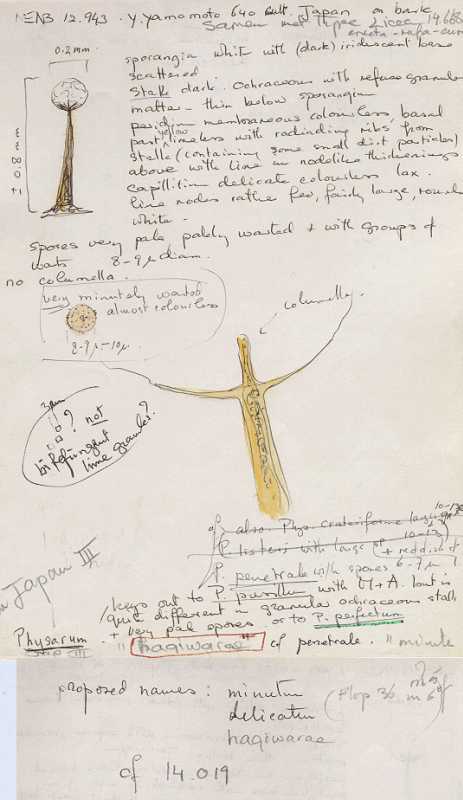 NENB 12.943 . Y. Yamamoto 640 cult. Japan on bark
Same
14.668
0.2mm
sporangia white with (dark) iridescent base
scattered
Stalk dark. Ochraceous with refuse granular
matter - thin below sporangium
peridium membraneous colourless, basal
yellow
part limeless with radiating ribs from
stalk (containing some small dirt particles)
above with lime in nodelike thickenings
capillitium delicate colourless lax.
lime nodes rather few, fairly large,
white -
spores very pale, palely warted + with groups of
warts 8-9 µ diam.
no columella.
very minutely warted
almost colourless
8-9µ-10µ
columella
3µm
? not
birefringent
lime granules?
cf also Phys. crateriforme
10-13
P. listeri with large
P. penetrale with spores 6-7µ !
Japan III
keys out to P. pusillum with M+A. but is
quite different in granular ochraceous stalk
+ very pale spores. or to P. perfectum
Physarum
" hagiwarae " cf penetrale. " minute
proposed names: minutum
delicatum
hagiwarae
cf 14.019